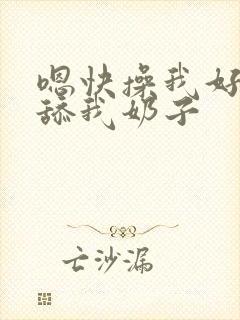 嗯快操我好
舔我奶子
亡沙漏